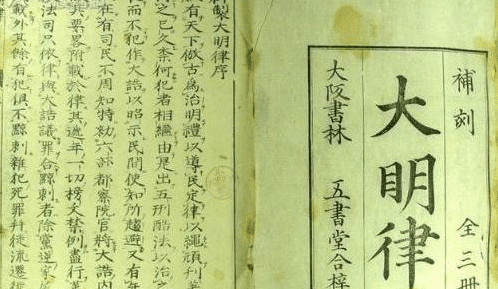 補刻 全三冊
大明律
大阪書林 五書堂合梓
製大明律序
有天下倣古為治明禮以導民定律以繩頑刊
之已久柰何犯者相繼由是出五刑酷法以治
而不犯作大誥以昭示民間使知所趨避又有年
在有司民不周知特勅六部都察院官將大誥内
畧附載於律其逓年一切榜文禁例盡行
法司只依律與大誥議罪合黥刺者除黨逆家
載外其餘有犯俱不黥刺雜犯死罪幷徒流遷